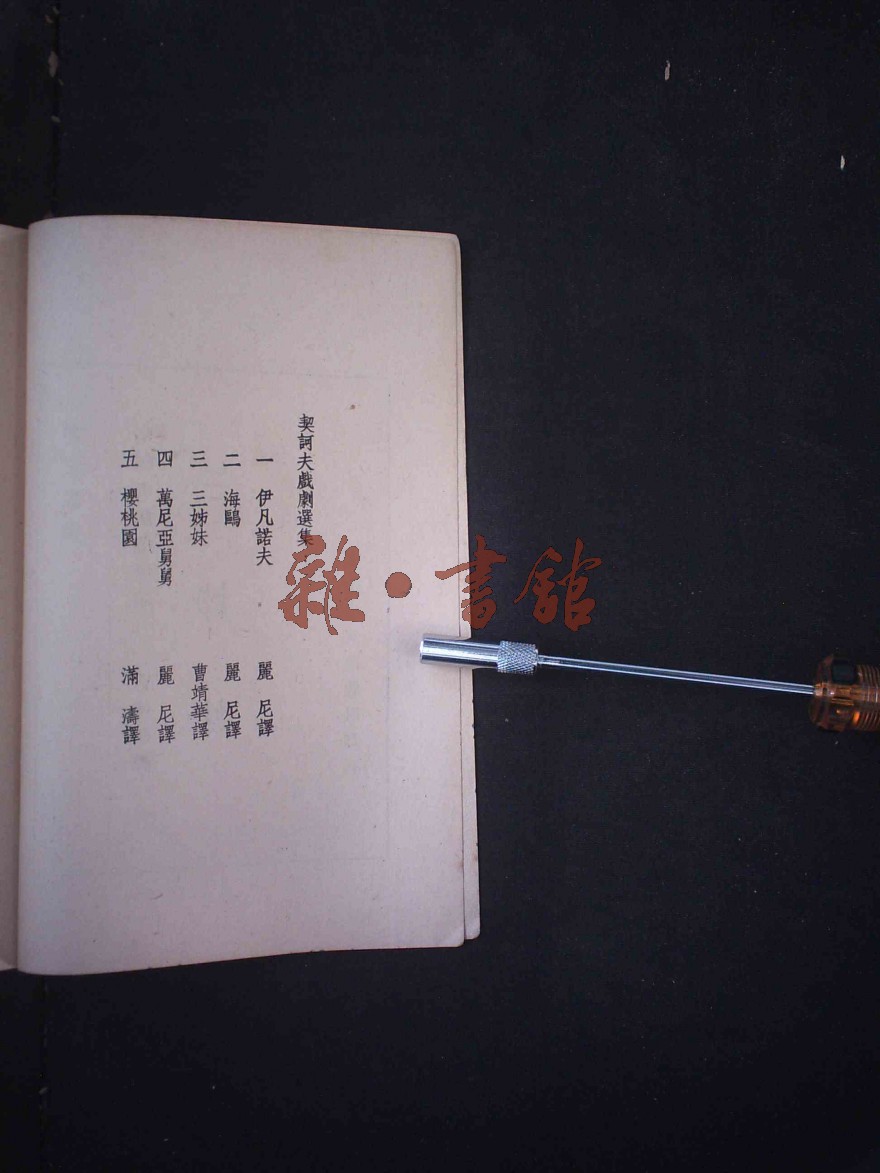 契訶夫戲劇選集
一 伊凡諾夫 麗尼譯
二 海鷗 麗尼譯
三 三姊妹 曹靖華譯
四 萬尼亞舅舅 麗尼譯
五 櫻桃園 滿濤譯
雜·書館